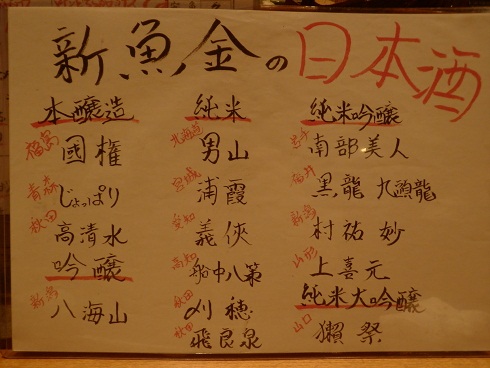 新魚金の日本酒
本醸造
福島 國権
青森 じょっぱり
秋田 高清水
吟醸
新潟 八海山
純米
北海道 男山
宮城 浦霞
愛知 義侠
高知 船中八策
秋田 刈穂
秋田 飛良泉
純米吟醸
岩手 南部美人
福井 黒龍 九頭龍
新潟 村祐 妙
山形 上喜元
純米大吟醸
山口 獺祭